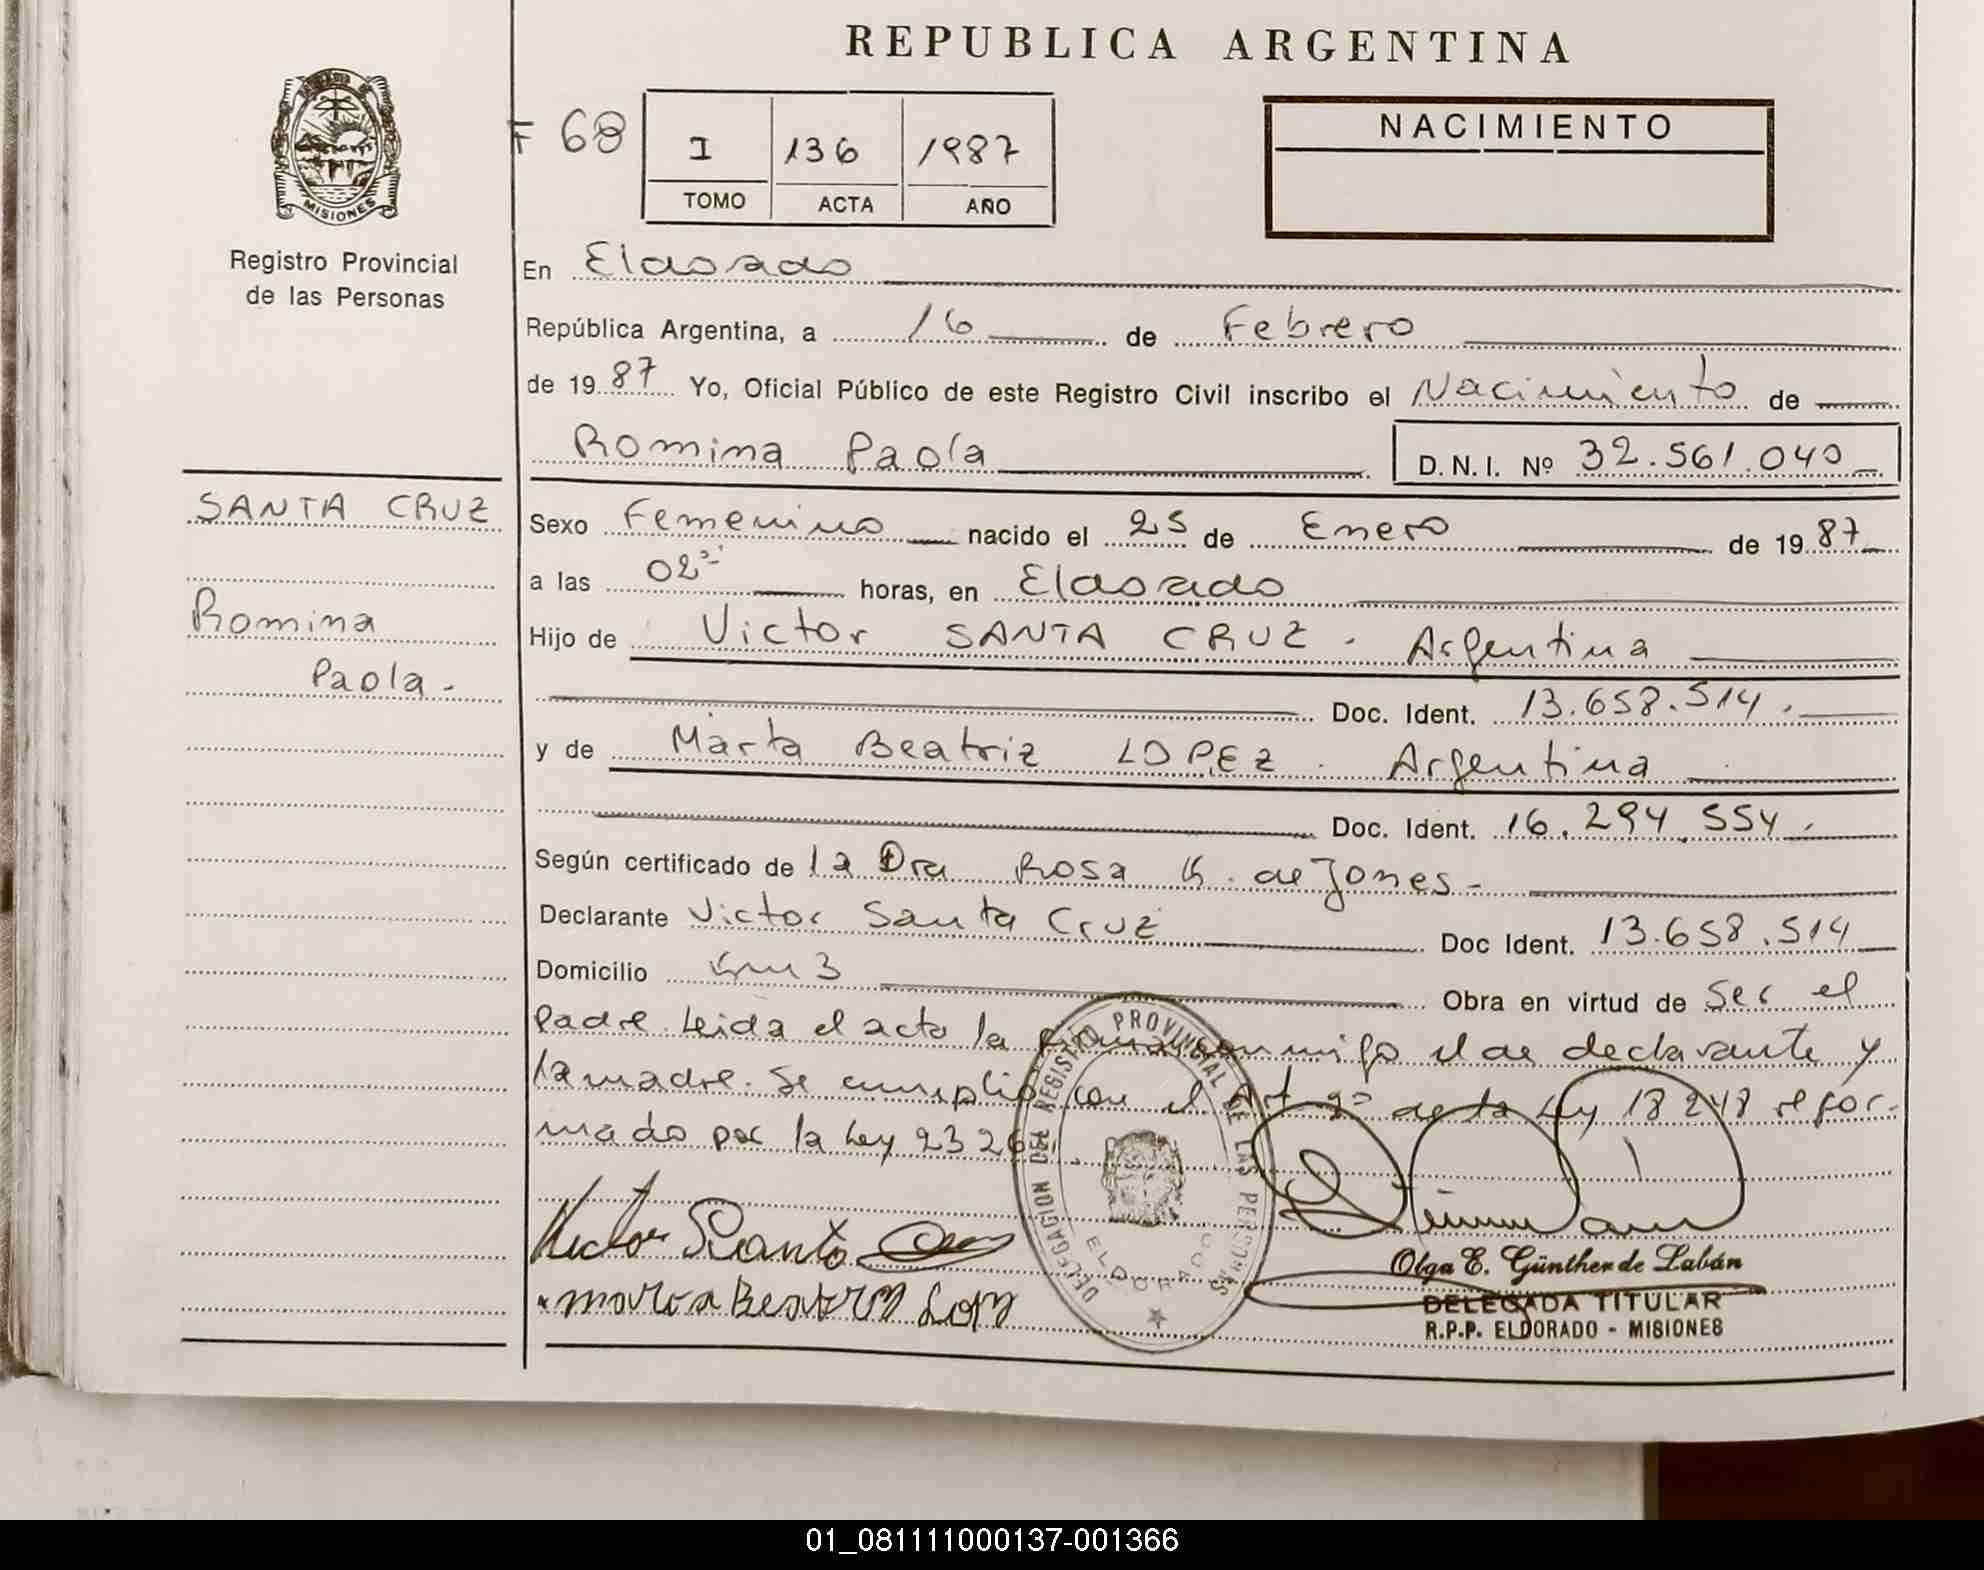 REPUBLICA ARGENTINA
MISIONES
Registro Provincial
de las Personas
F 68
I 136 1987
TOMO ACTA AÑO
NACIMIENTO
En Eldorado
República Argentina, a 16 de Febrero
de 1987 Yo, Oficial Público de este Registro Civil inscribo el Nacimiento de
Romina Paola D.N.I. Nº 32.561.040
SANTA CRUZ
Romina
Paola.-
Sexo Femenino nacido el 25 de Enero de 1987
a las 02 horas, en Eldorado
Hijo de Victor SANTA CRUZ. Argentina
Doc. Ident. 13.658.514.
y de Marta Beatriz LOPEZ. Argentina
Doc. Ident. 16.294.554.
Según certificado de la Dra Rosa K. de Jones-
Declarante Victor Santa Cruz Doc Ident. 13.658.514
Domicilio Km 3 Obra en virtud de Ser el
Padre. Leida el acto la firma conmigo el de declarante y
la madre. Se cumplio con el Art 2º de la Ley 18248 refor-
mado por la Ley 2326
DELEGACION DEL REGISTRO PROVINCIAL DE LAS PERSONAS
ELDORADO
Victor Santa Cruz
Olga E. Günther de Labán
DELEGADA TITULAR
R.P.P. ELDORADO - MISIONES
01_081111000137-001366